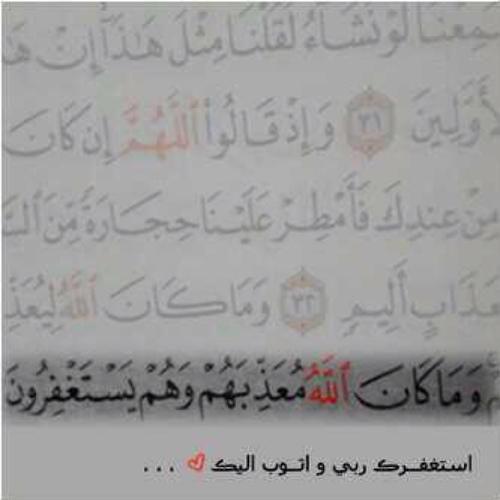 سَمِعْنَا لَوْ نَشَاءُ لَقُلْنَا مِثْلَ هَٰذَا إِنْ هَ
لْأَوَّلِينَ ٣١ وَإِذْ قَالُوا ٱللَّهُمَّ إِن كَانَ
مِنْ عِندِكَ فَأَمْطِرْ عَلَيْنَا حِجَارَةً مِّنَ ٱلسَّ
عَذَابٍ أَلِيمٍ ٣٢ وَمَا كَانَ ٱللَّهُ لِيُعَذِّ
وَمَا كَانَ ٱللَّهُ مُعَذِّبَهُمْ وَهُمْ يَسْتَغْفِرُونَ
استغفرك ربي و اتوب اليك ❤ ...